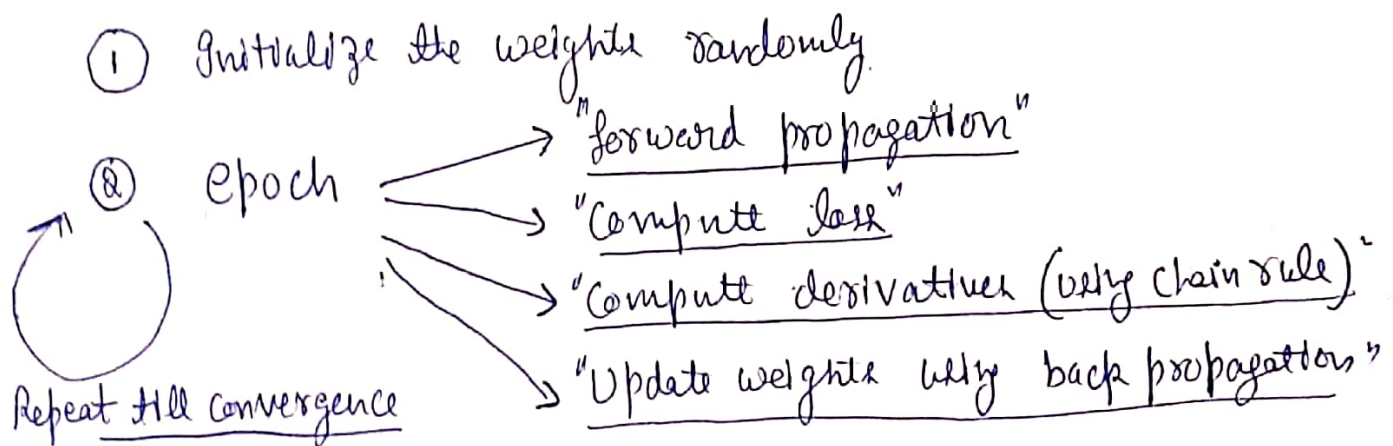 ① Initialize the weights randomly.
② epoch
"forward propagation"
"Compute loss"
"Compute derivatives (using chain rule)"
"Update weights using back propagation"
Repeat till convergence